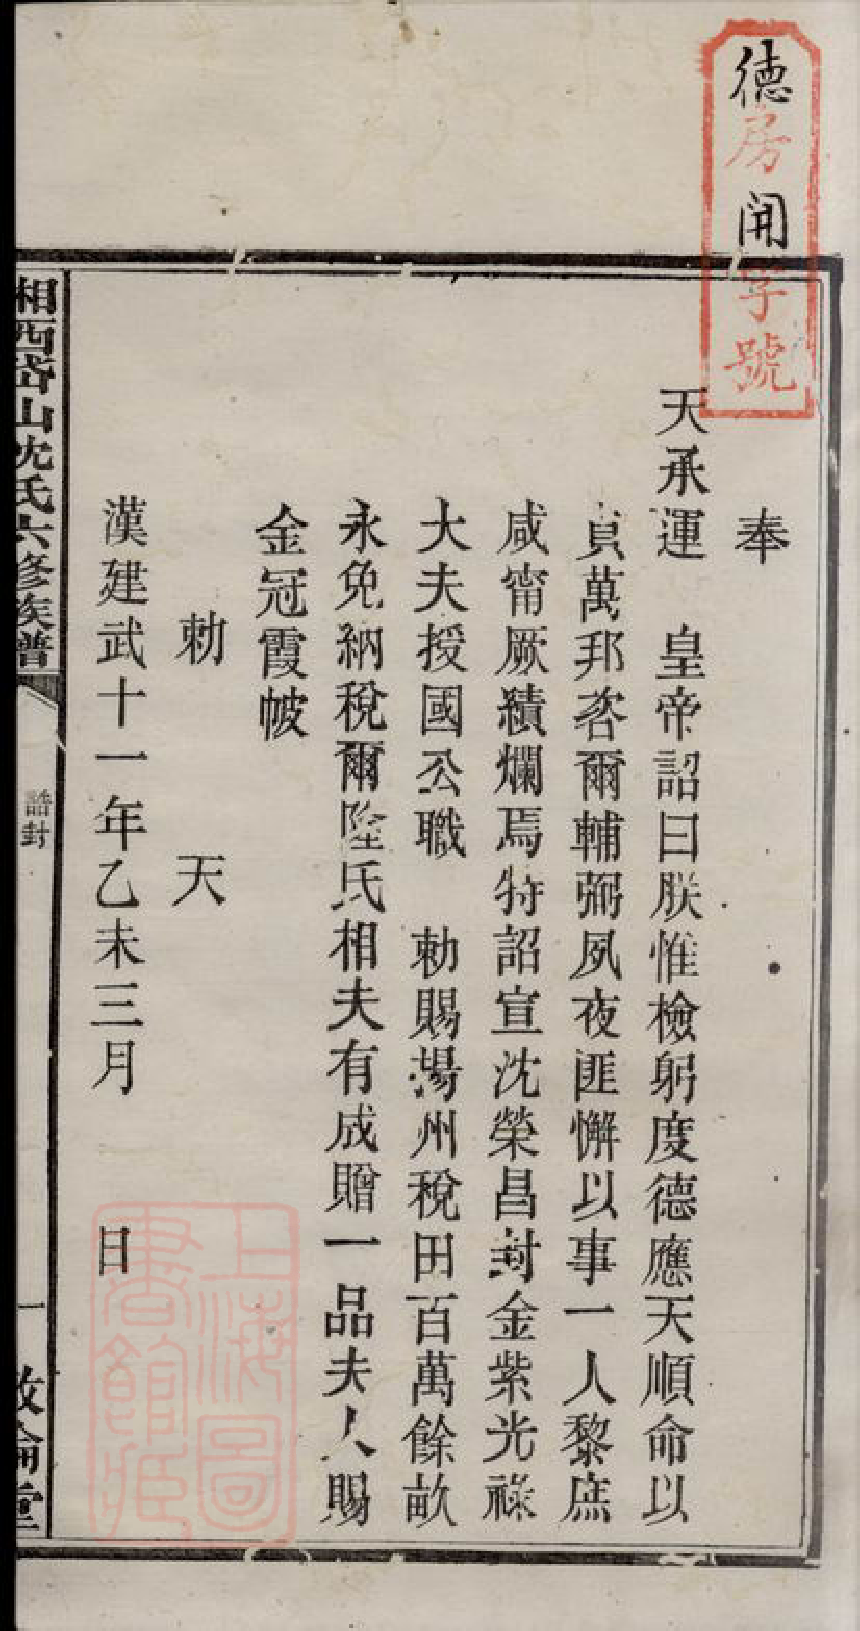 德房開字號
奉
天承運　皇帝詔曰朕惟檢躬度德應天順命以
貞萬邦咨爾輔弼夙夜匪懈以事一人黎庶
咸甯厥績爛焉特詔宣沈榮昌封金紫光祿
大夫授國公職　勅賜揚州稅田百萬餘畝
永免納稅爾陸氏相夫有成贈一品夫人賜
金冠霞帔
勅　天
漢建武十一年乙未三月　日
上海圖書館藏
湘西岱山沈氏六修族譜
誥封
一
敦倫堂